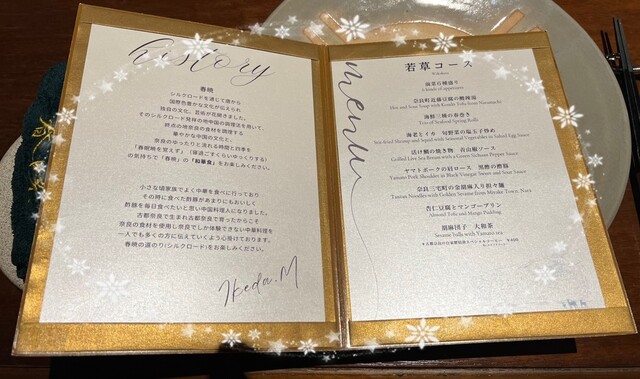 history
春暁
シルクロードを通じて唐から
国際色豊かな文化が伝えられ
独自の文化、芸術が花開きました。
そのシルクロード発祥の地中国の調理法を用いて、
終点の地奈良の食材を調理する
華やかな中国の文化と、
奈良のゆったりと流れる時間と四季を
の気持ちで「春暁」の「和華食」をお楽しみください。
小さな頃家族でよく中華を食べに行っており
その時に食べた酢豚があまりにもおいしく
酢豚を毎日食べたいと思い中国料理人になりました。
古都奈良で生まれ古都奈良で育ったからこそ
奈良の食材を使用し奈良でしか体験できない中華料理を
一人でも多くの方に伝えていくよう心受けております。
春暁の道のり(シルクロード)をお楽しみください。
Ikeda.M
menu
若草コース
Wakakusa
前菜の種盛り
海鮮三種の春巻き
Trio of Seafood Spring Rolls
海老とイカ 旬野菜の塩玉子炒め
Stir-fried Shrimp and Squid with Seasonal Vegetables in Salted Egg Sauce
活け鯛の焼き物 青山椒ソース
Grilled Live Sea Bream with a Green Sichuan Pepper Sauce
ヤマトポークの肩ロース 黒酢の酢豚
Yamato Pork Shoulder in Black Vinegar Sweet and Sour Sauce
奈良三宅町の金胡麻入り担々麺
Tantan Noodles with Golden Sesame from Miyake Town, Nara
杏仁豆腐とマンゴープリン
Almond Tofu and Mango Pudding
胡麻団子 大和茶
Sesame balls with Yamato tea